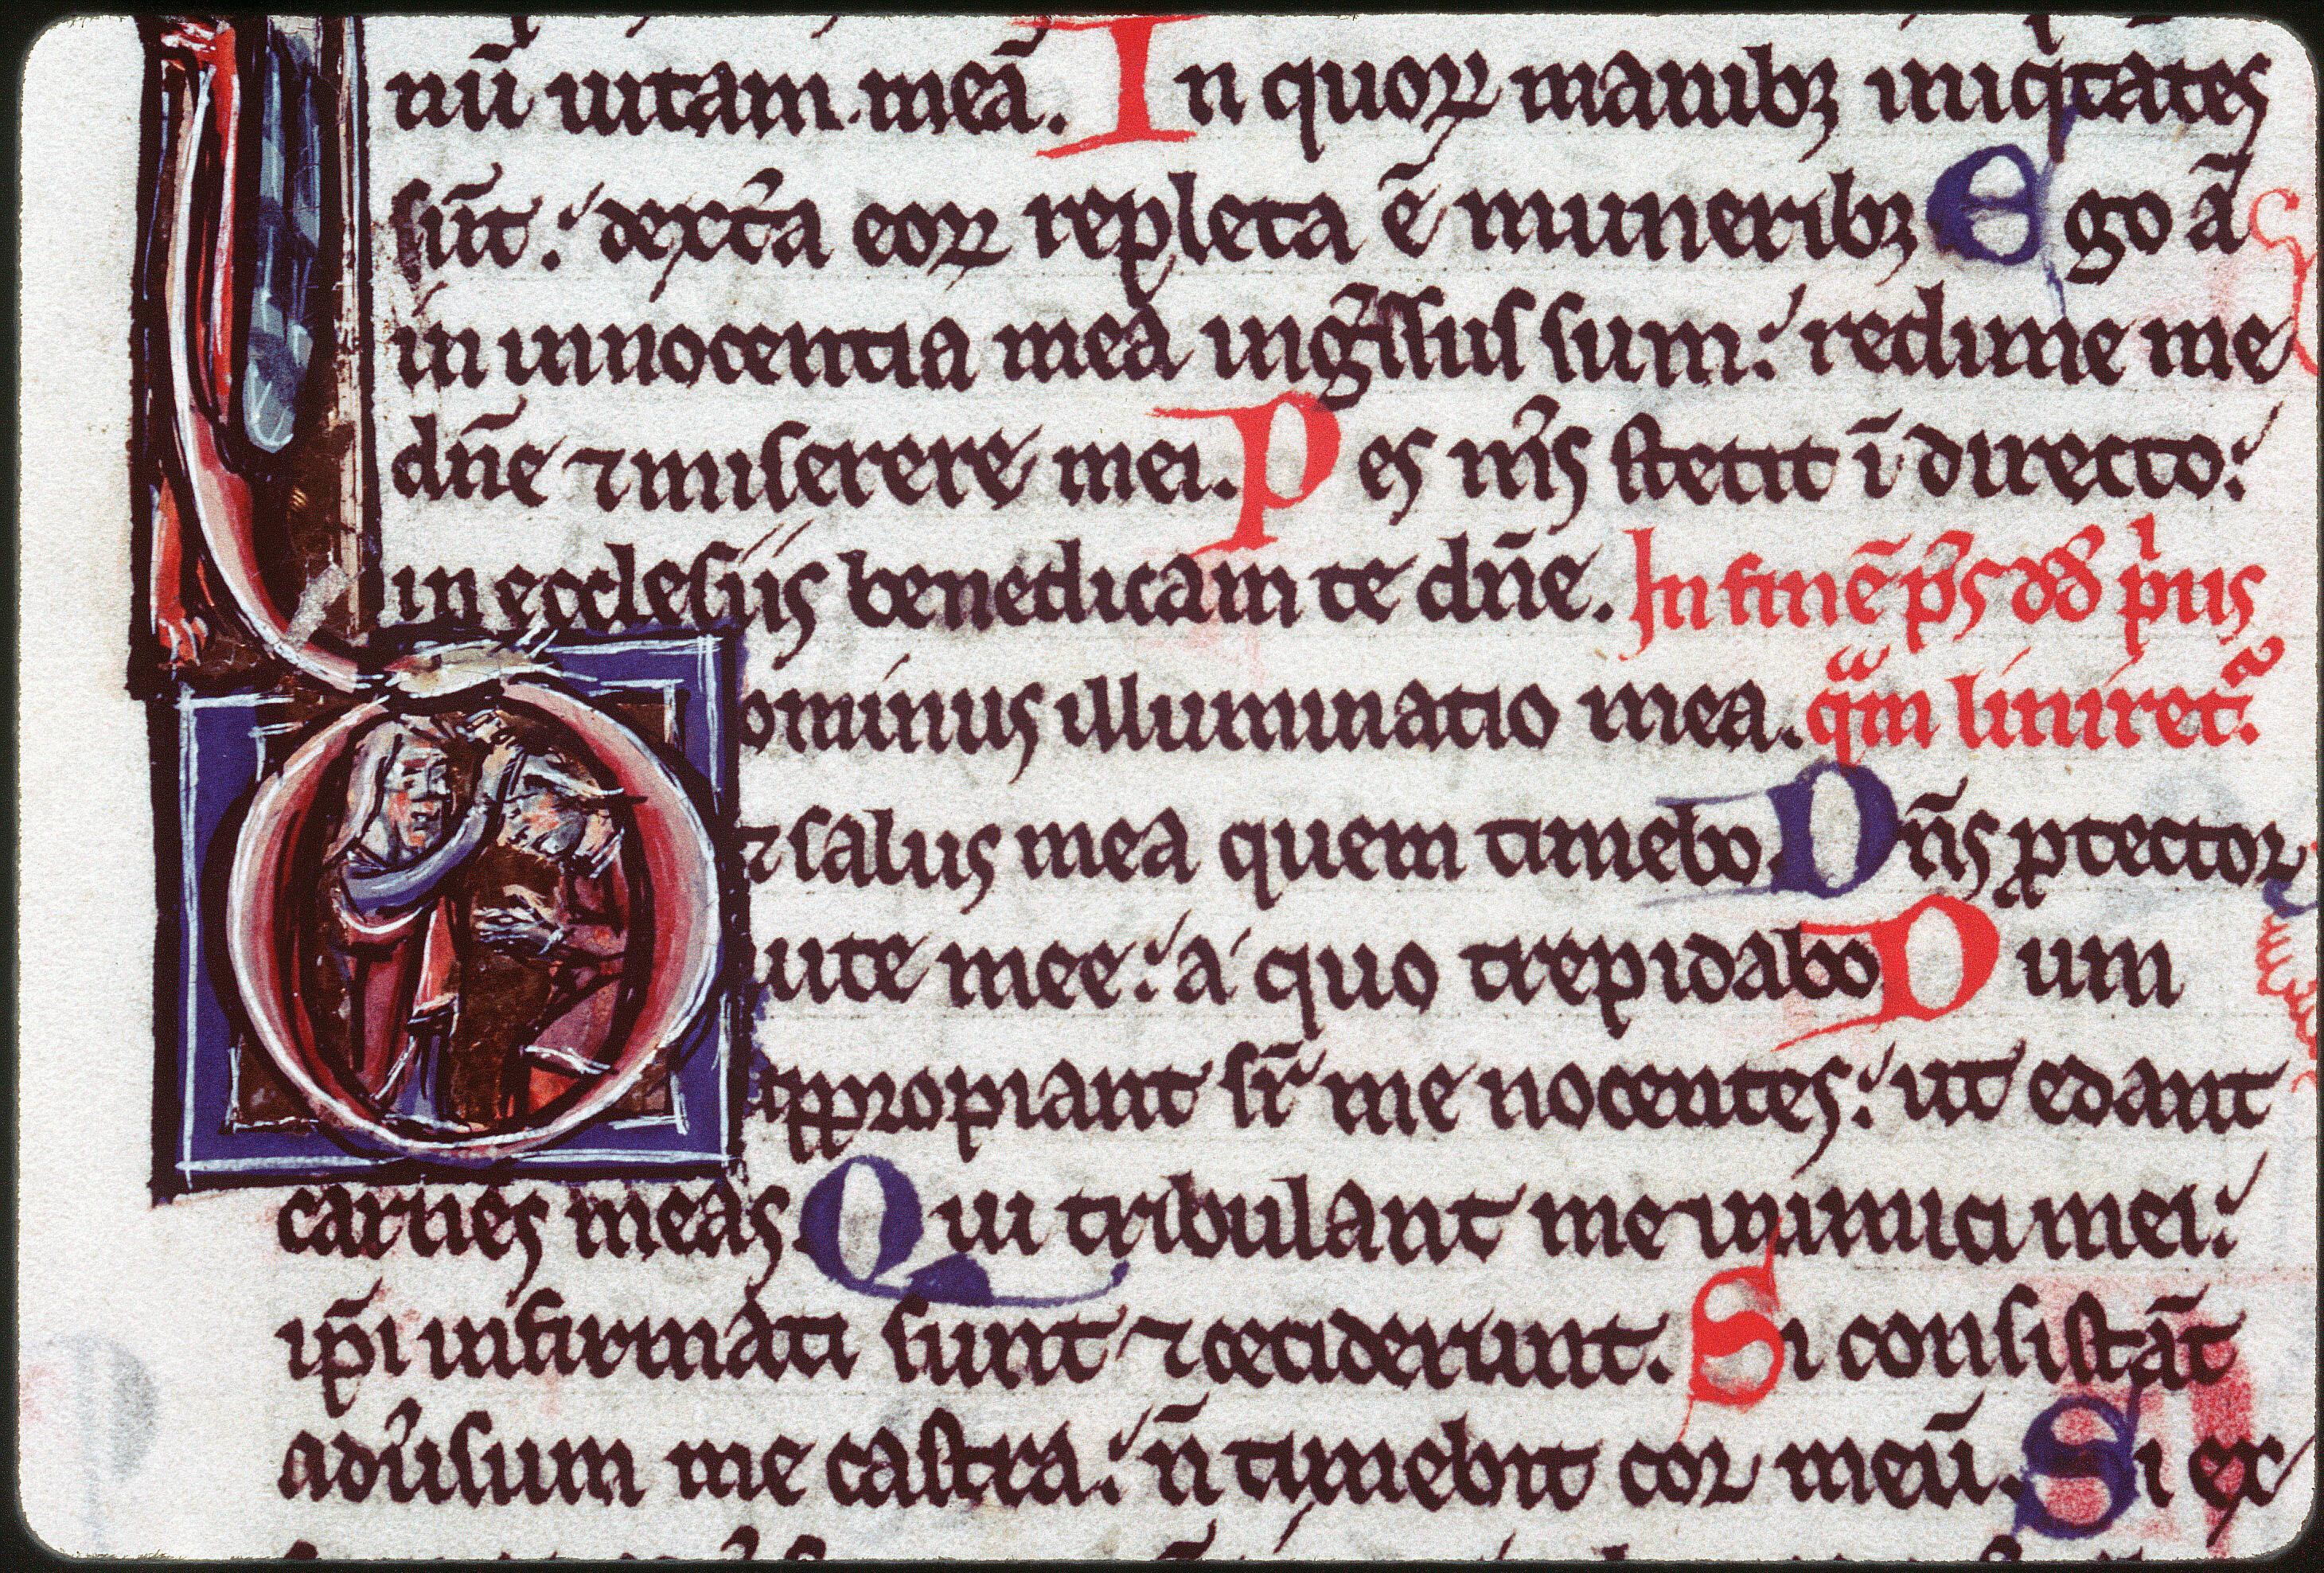 nū uitam meā. In quoꝝ manibꝫ iniqͥtates
sūt: dext̉a eoꝝ repleta ē muneribꝫ Ego ā
in innocentia mea ing̃ssus sum: redime me
dñe ⁊ miserere mei. Pes nr̃s stetit ī directo:
in ecclesiis benedicam te dñe. In finē ps̃ dd̃ pͥus
Dominus illuminatio mea. qͣm liniret᷑.
⁊ salus mea quem timebo Dñs ꝓtector
uite mee: a quo trepidabo Dum
appropiant sr̃ me nocentes: ut edant
carnes meas. Qui tribulant me inimici mei:
ip̃i infirmati sunt ⁊ ceciderunt. Si consistāt
adũsum me castra: ñ timebit cor meū. Si ex